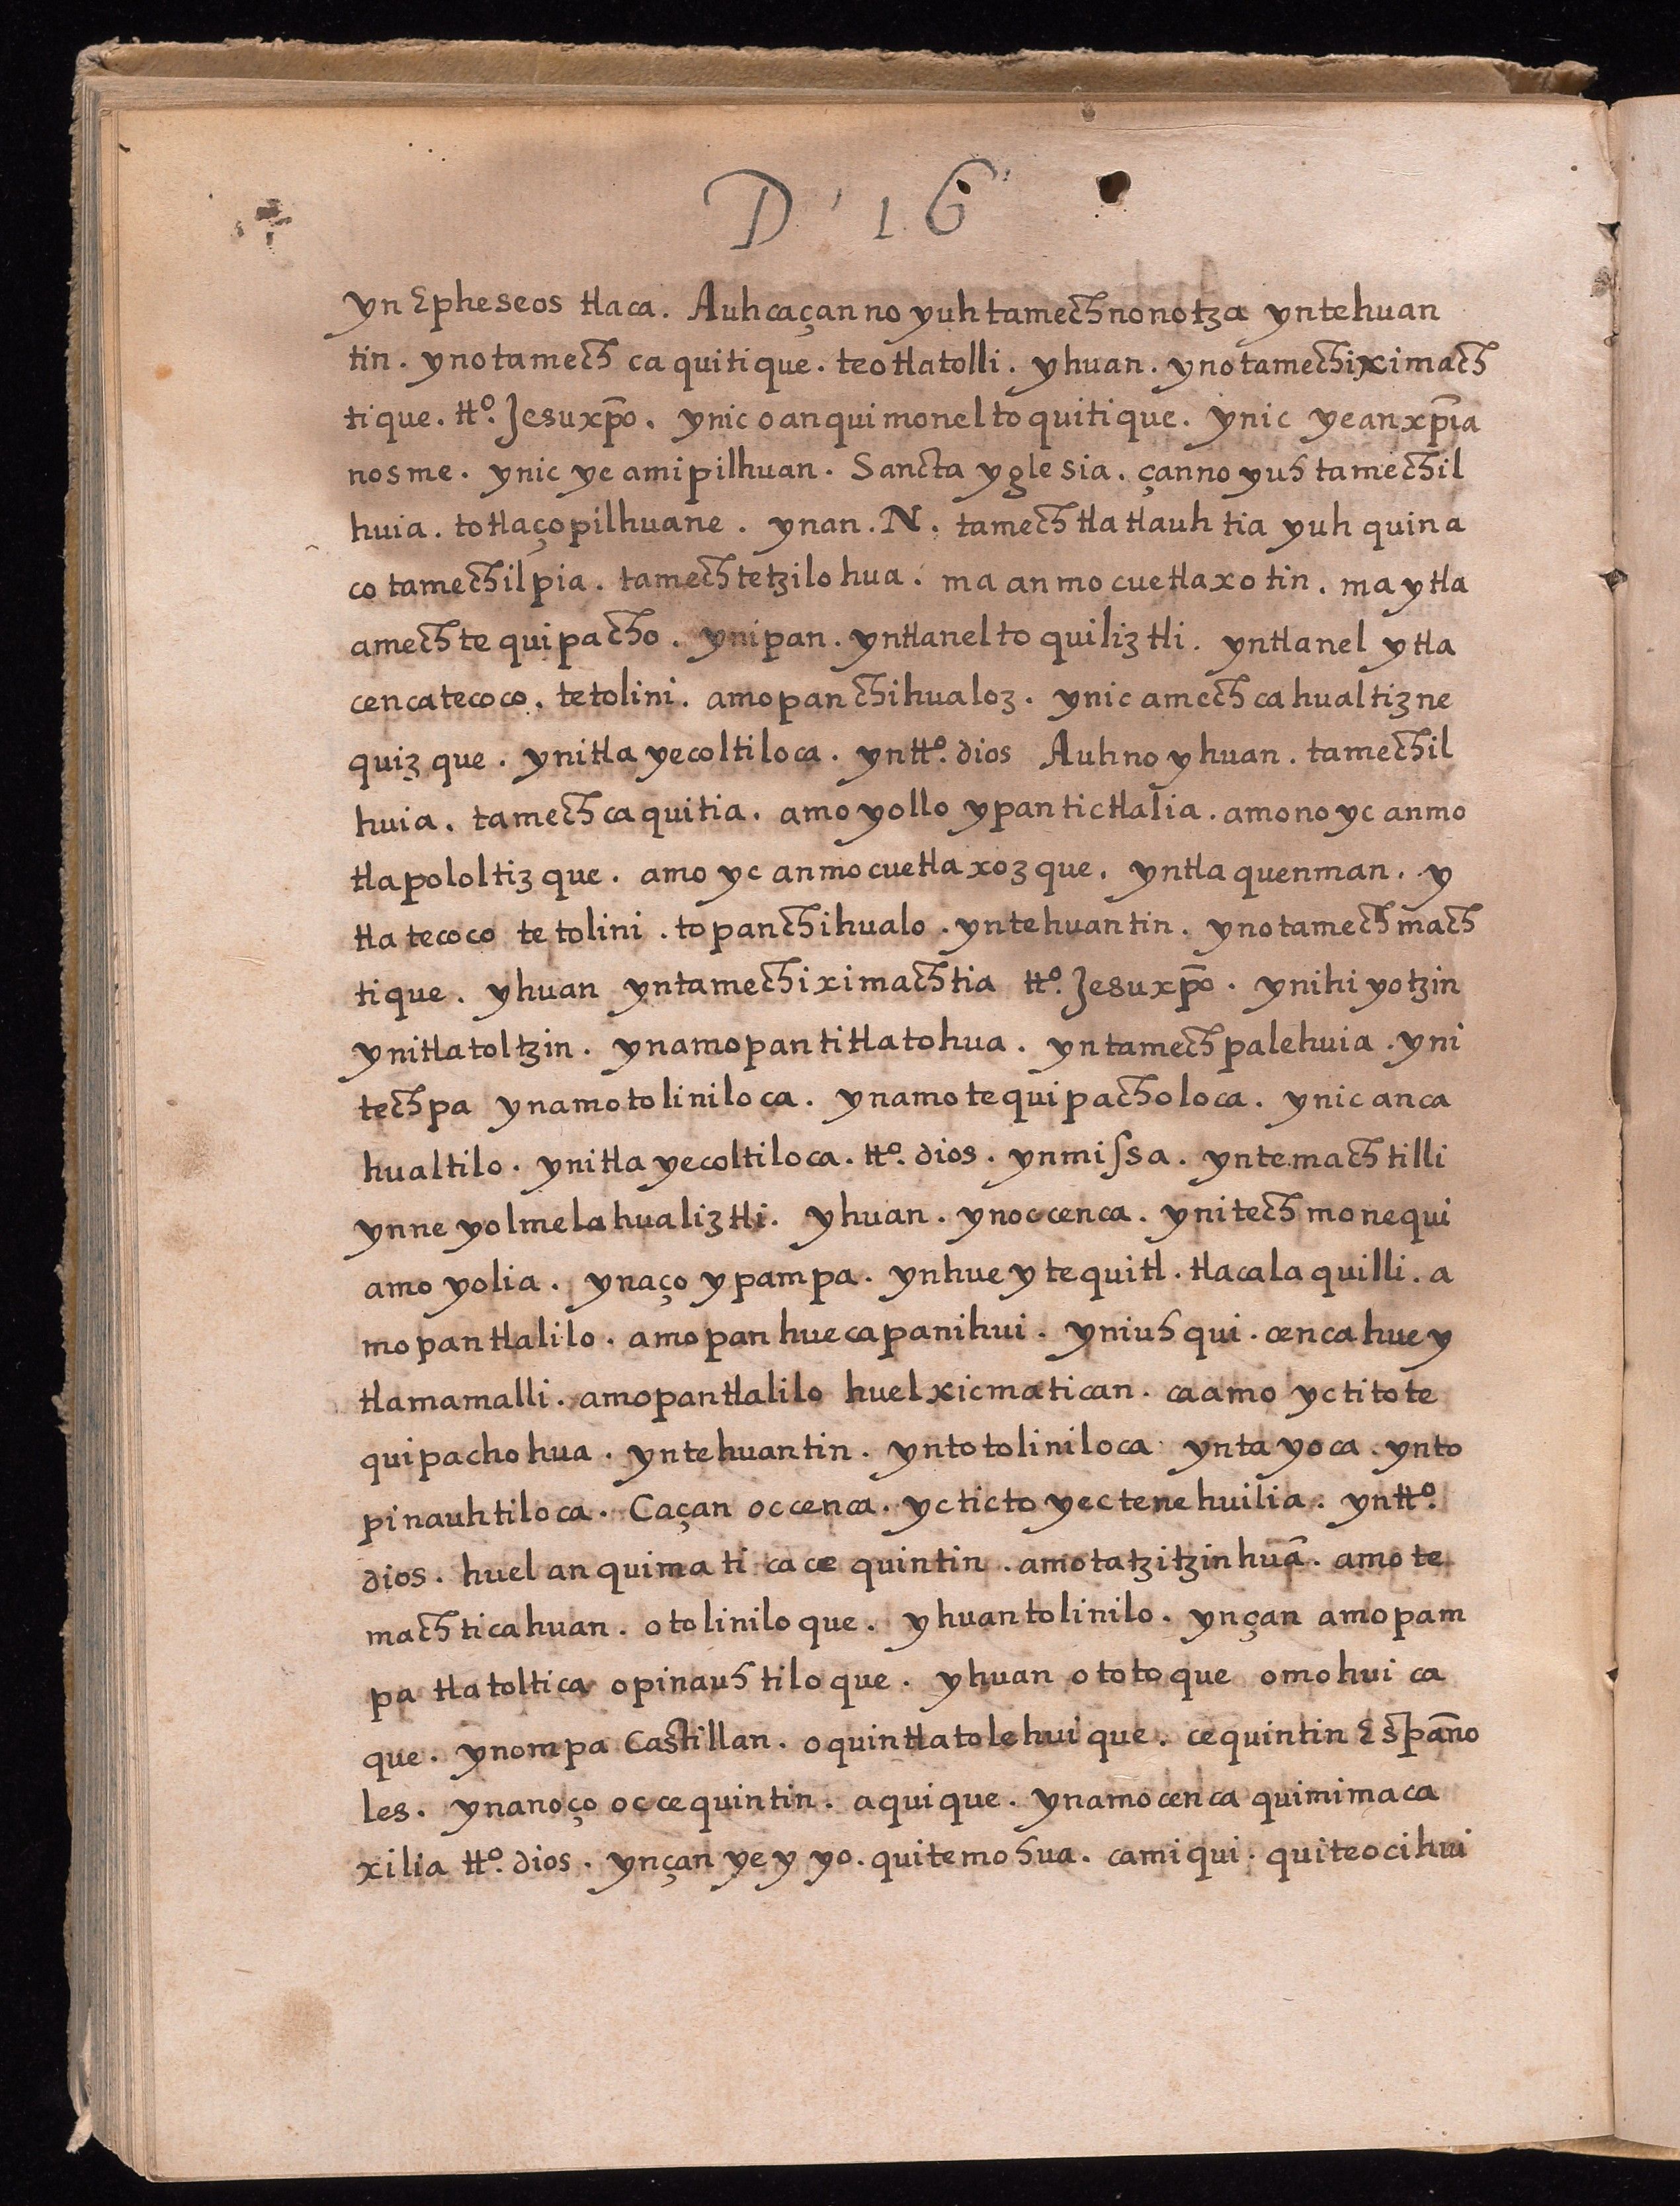 D' 16'
yn Epheseos tlaca. Auh caçan no yuh tamechnonotza yntehuan
tin. ynotamech caquitique. teotlatolli. yhuan. ynotamechiximach
tique. tt.º Jesuxp̄o. ynic oanquimoneltoquitique. ynic yeanxp̄ia
nosme. ynic ye amipilhuan. Sancta yglesia. çanno yuh tamechil
huia. totlaçopilhuane. ynan. N. tamechtlatlauhtia yuhquina
co tamechilpia. tamechtetzilohua. ma anmocuetlaxotin. ma ytla
amechtequipacho. ynipan. yntlaneltoquiliztli. yntlanel ytla
cencatecoco. tetolini. amopanchihualoz. ynic amechcahualtizne
quizque. ynitlayecoltiloca. yntt.º dios Auh no yhuan. tamechil
huia. tamechcaquitia. amoyollo ypantictlalia. amono yc anmo
tlapololtizque. amo yc anmocuetlaxozque. yntla quenman. y
tla tecoco tetolini. topanchihualo. yntehuantin. ynotamechmach
tique. yhuan yntamechiximachtia tt.º Jesuxp̄o. ynihiyotzin
ynitlatoltzin. ynamopantitlatohua. yntamechpalehuia. yni
techpa ynamotoliniloca. ynamotequipacholoca. ynicanca
hualtilo. ynitlayecoltiloca. tt.º dios. ynmiſsa. yntemachtilli
ynneyolmelahualiztli. yhuan. ynoccenca. ynitechmonequi
amoyolia. ynaço ypampa. ynhuey tequitl. tlacalaquilli. a
mopantlalilo. amopanhuecapanihui. yniuhqui. cencahuey
tlamamalli. amopantlalilo huelxicmatican. caamo yctitote
quipachohua. yntehuantin. yntotoliniloca yntayoca. ynto
pinauhtiloca. Caçan occenca. ycticto yectenehuilia. yntt.º
dios. huel anquimati cacequintin. amotatzitzinhuā. amote
machticahuan. otoliniloque. yhuantolinilo. ynçan amopam
pa tlatoltica opinauhtiloque. yhuan ototoque omohuica
que. ynompa Castillan. oquintlatolehuique. cequintin Espān̄o
les. ynanoço occequintin. aquique. ynamocenca quimimaca
xilia tt.º dios. ynçan yeyyo. quitemohua. camiqui. quiteocihui